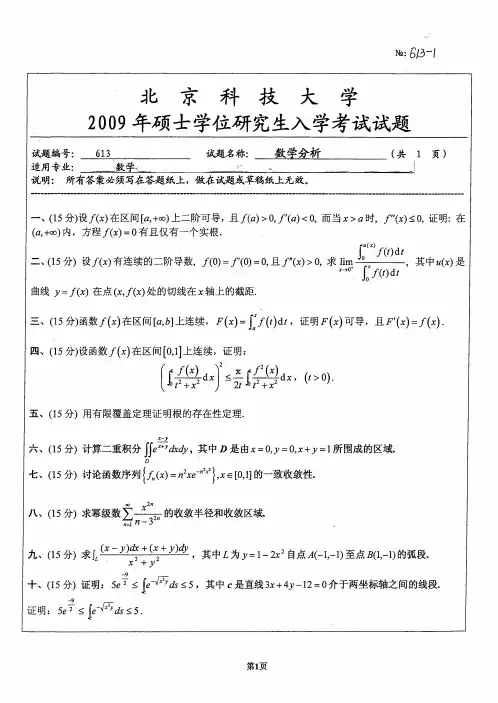 №: 613-1
北 京 科 技 大 学
2009 年硕士学位研究生入学考试试题
试题编号: 613 试题名称: 数学分析 (共 1 页)
适用专业: 数学、
说明: 所有答案必须写在答题纸上,做在试题或草稿纸上无效。
一、(15 分)设 f(x) 在区间[a,+∞) 上二阶可导,且 f(a)>0, f'(a)<0, 而当 x>a 时, f''(x)≤0, 证明: 在
(a,+∞) 内,方程 f(x)=0 有且仅有一个实根.
二、(15 分) 设 f(x) 有连续的二阶导数, f(0)=f'(0)=0, 且 f''(x)>0, 求 lim_{x→0⁺} ∫_0^{u(x)} f(t)dt / ∫_0^x f(t)dt, 其中 u(x) 是
曲线 y=f(x) 在点(x, f(x) 处的切线在 x 轴上的截距.
三、(15 分)函数 f(x) 在区间[a,b]上连续, F(x)=∫_a^x f(t)dt, 证明 F(x) 可导,且 F'(x)=f(x).
四、(15 分)设函数 f(x) 在区间[0,1]上连续,证明:
(∫ f(x)/(t²+x²) dx)² ≤ π/2t ∫ f²(x)/(t²+x²) dx, (t>0).
五、(15 分) 用有限覆盖定理证明根的存在性定理.
六、(15 分) 计算二重积分 ∬_D e^{(x-y)/(x+y)} dxdy, 其中 D 是由 x=0, y=0, x+y=1 所围成的区域.
七、(15 分) 讨论函数序列 {f_n(x)=n²xe^{-n²x²}}, x∈[0,1] 的一致收敛性.
八、(15 分) 求幂级数 ∑_{n=1}^∞ x^{2n}/(n-3^{2n}) 的收敛半径和收敛区域.
九、(15 分) 求∫_L ((x-y)dx+(x+y)dy)/(x²+y²), 其中 L 为 y=1-2x² 自点 A(-1,-1) 至点 B(1,-1) 的弧段.
十、(15 分) 证明: 5e^{-9/2} ≤ ∫_c e^{-√(x³y)} ds ≤ 5, 其中 c 是直线 3x+4y-12=0 介于两坐标轴之间的线段.
证明: 5e^{-9/2} ≤ ∫_c e^{-√(x³y)} ds ≤ 5.
第1页